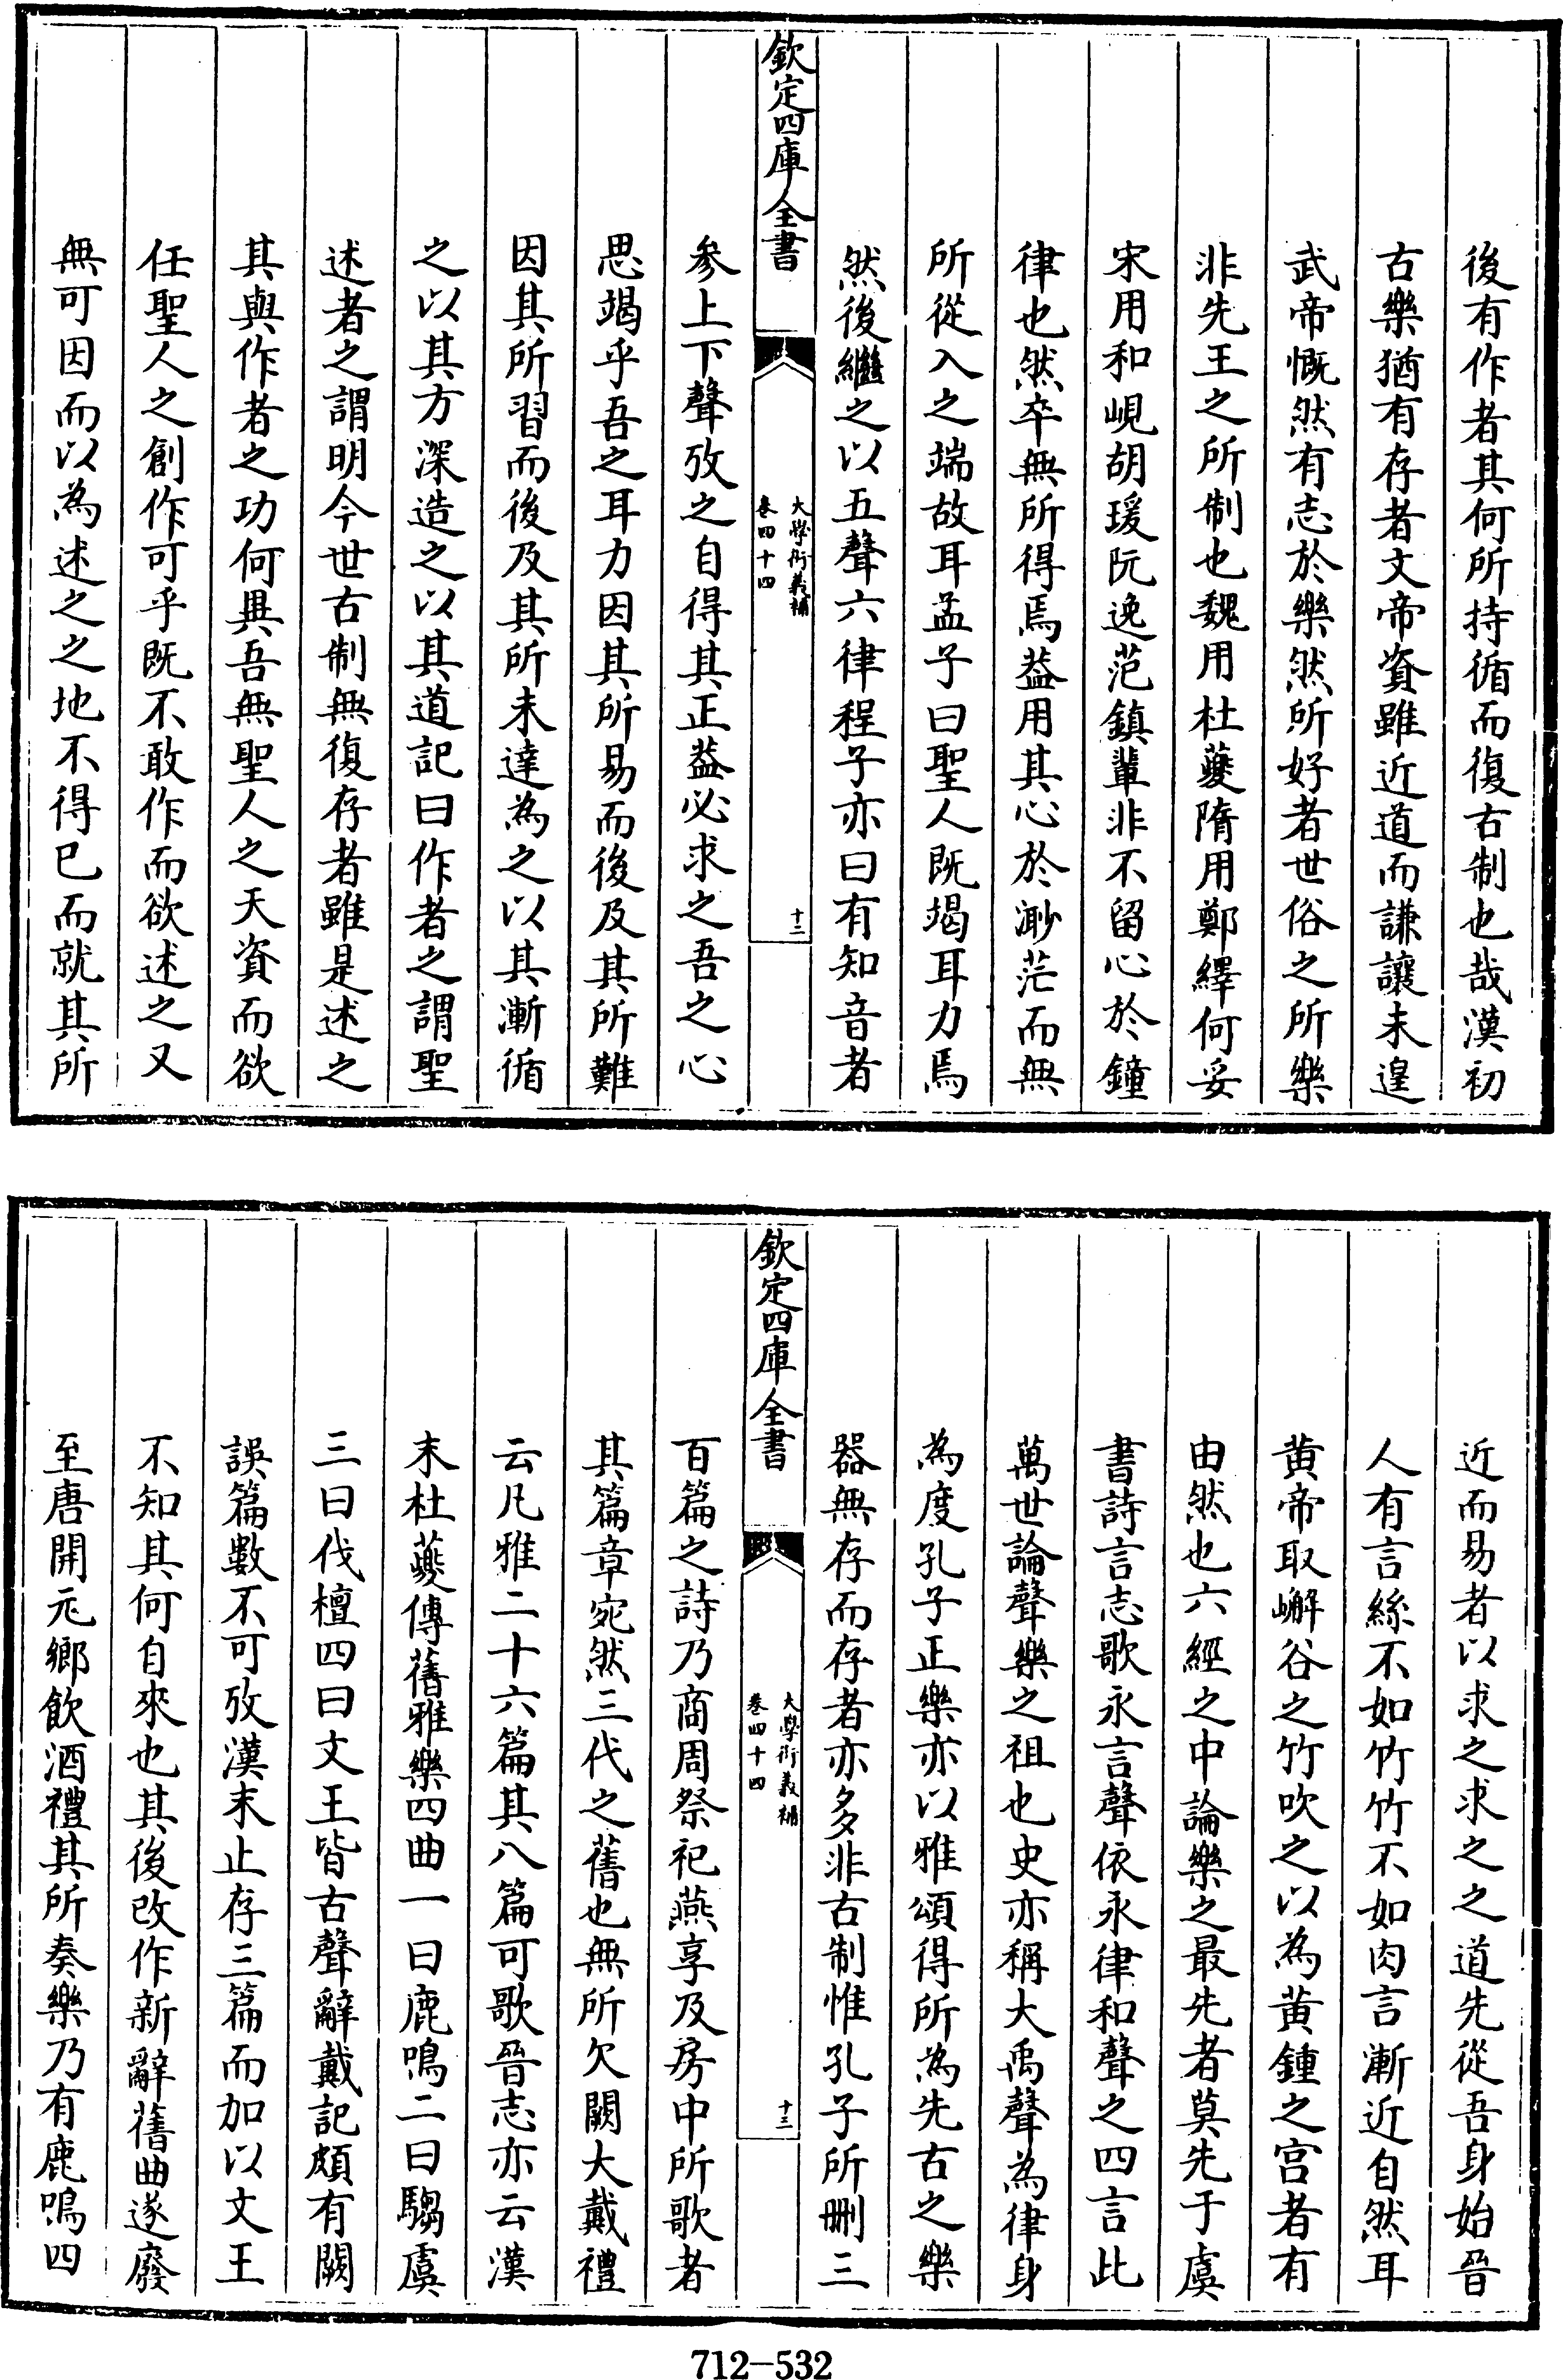 後有作者其何所持循而復古制也哉漢初
古樂猶有存者文帝資雖近道而謙讓未遑
武帝慨然有志於樂然所好者世俗之所樂
非先王之所制也魏用杜夔隋用鄭繹何妥
宋用和峴胡瑗阮逸范鎮輩非不留心於鐘
律也然卒無所得焉葢用其心於渺茫而無
所從入之端故耳孟子曰聖人既竭耳力焉
然後繼之以五聲六律程子亦曰有知音者
欽定四庫全書
大學衍義補
卷四十四
十二
參上下聲攷之自得其正葢必求之吾之心
思竭乎吾之耳力因其所易而後及其所難
因其所習而後及其所未達為之以其漸循
之以其方深造之以其道記曰作者之謂聖
述者之謂明今世古制無復存者雖是述之
其與作者之功何異吾無聖人之天資而欲
任聖人之創作可乎既不敢作而欲述之又
無可因而以為述之之地不得已而就其所
近而易者以求之求之之道先從吾身始晉
人有言絲不如竹竹不如肉言漸近自然耳
黄帝取嶰谷之竹吹之以為黄鍾之宫者有
由然也六經之中論樂之最先者莫先于虞
書詩言志歌永言聲依永律和聲之四言此
萬世論聲樂之祖也史亦稱大禹聲為律身
為度孔子正樂亦以雅頌得所為先古之樂
器無存而存者亦多非古制惟孔子所刪三
欽定四庫全書
大學衍義補
卷四十四
十三
百篇之詩乃商周祭祀燕享及房中所歌者
其篇章宛然三代之舊也無所欠闕大戴禮
云凡雅二十六篇其八篇可歌晉志亦云漢
末杜夔傳舊雅樂四曲一曰鹿鳴二曰騶虞
三曰伐檀四曰文王皆古聲辭戴記頗有闕
誤篇數不可攷漢末止存三篇而加以文王
不知其何自來也其後改作新辭舊曲遂廢
至唐開元鄉飲酒禮其所奏樂乃有鹿鳴四
712-532